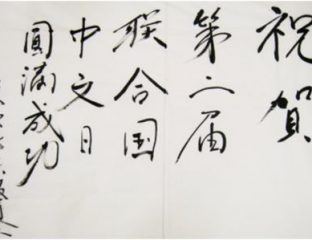 祝贺
第二届
联合国
中文日
圓滿成功